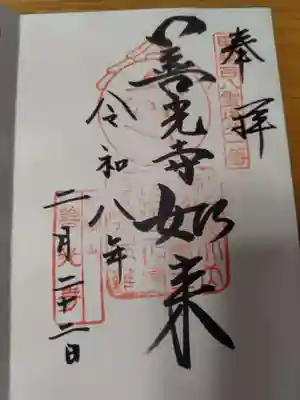 奉拝
善光寺如来
令和八年
二月二十二日